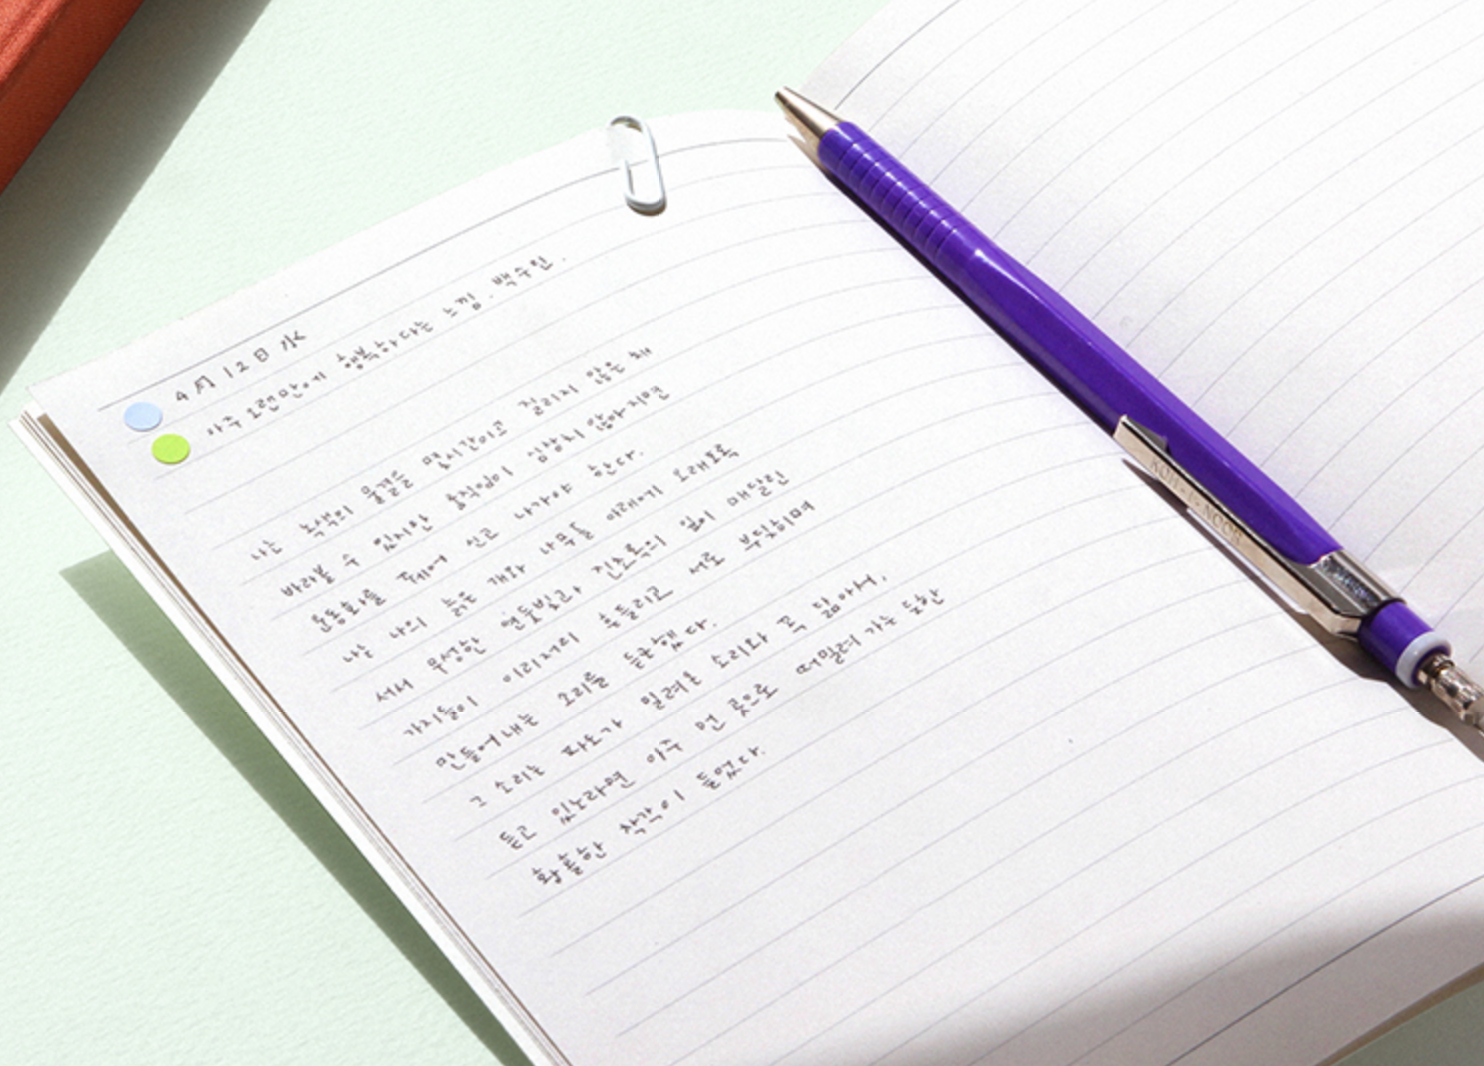 4月 12日 水
아주 오랜만에 행복하다는 느낌. 백수린.
나는 녹색의 물결을 몇시간이고 질리지 않은 채
바라볼 수 있지만 움직임이 심상치 않아지면
운동화를 꿰어 신고 나가야 한다.
나는 나의 늙은 개와 나무들 아래에 오래도록
서서 무성한 연둣빛과 진초록의 잎이 매달린
가지들이 이리저리 흔들리고 서로 부딪히며
만들어내는 소리를 듣곤했다.
그 소리는 파도가 밀려온 소리와 꼭 닮아서,
듣고 있노라면 아주 먼 곳으로 떠밀려 가는 듯한
황홀한 착각이 들었다.
KOH-I-NOOR